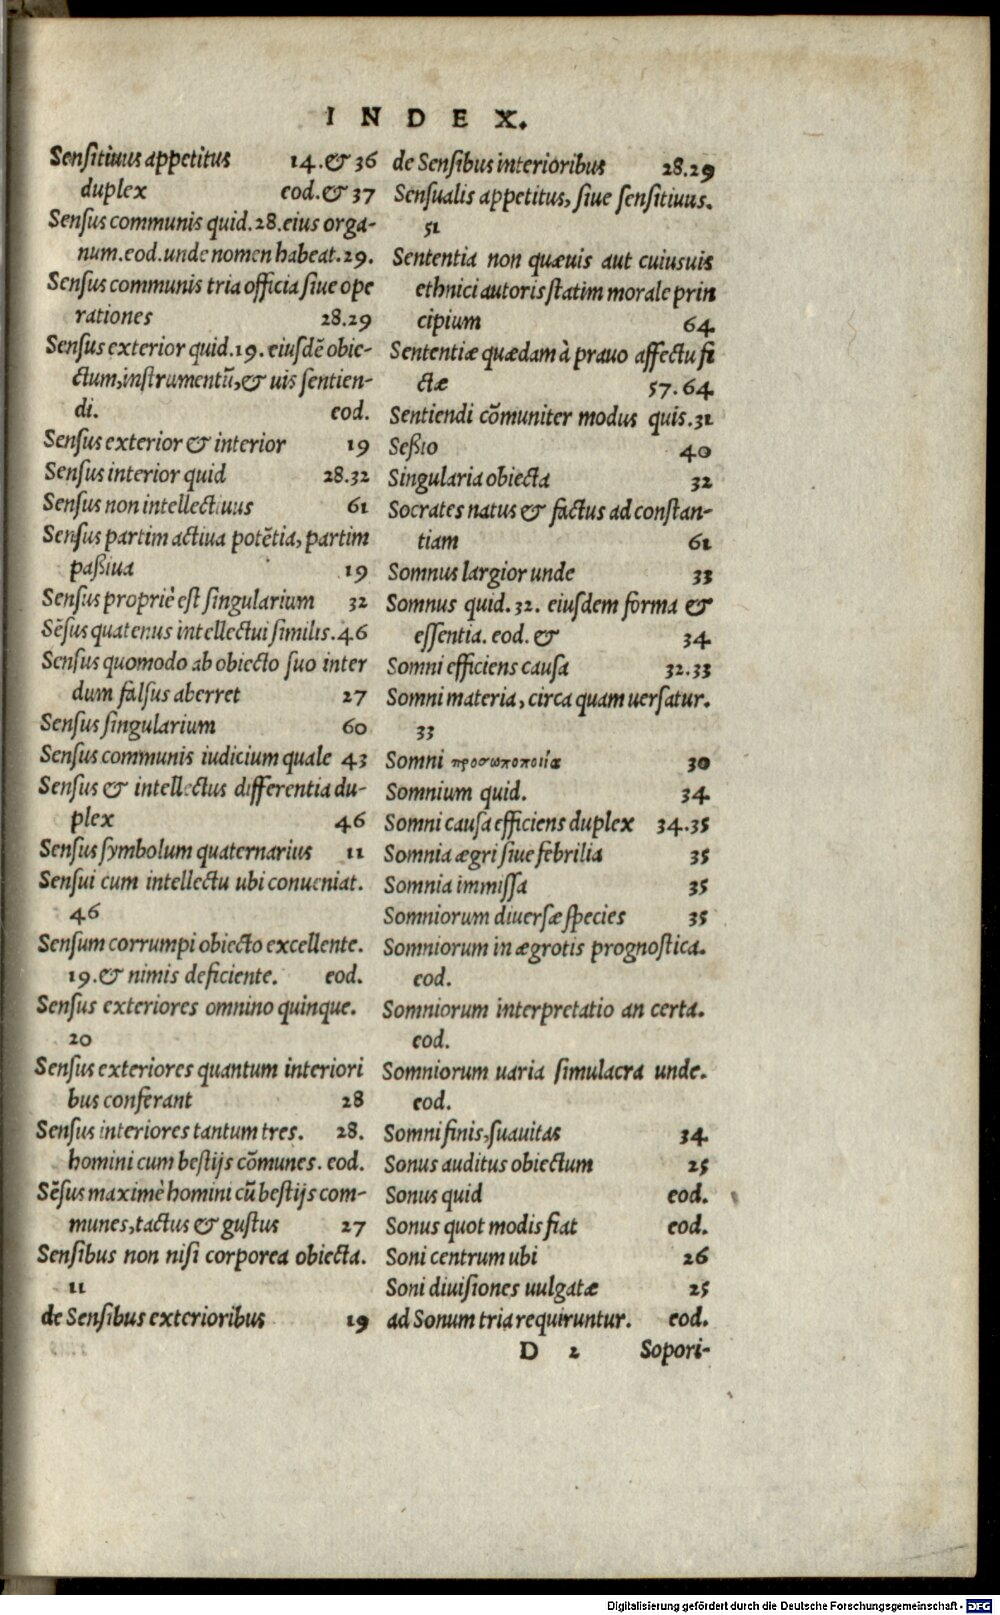 INDEX.
Sensitiuus appetitus 14.& 36
duplex eod.& 37
Sensus communis quid.28.eius orga-
num.eod.unde nomen habeat.29.
Sensus communis tria officia siue ope
rationes 28.29
Sensus exterior quid.19. eiusdē obie-
ctum,instrumentū,& uis sentien-
di. eod.
Sensus exterior & interior 19
Sensus interior quid 28.32
Sensus non intellectiuus 61
Sensus partim actiua potētia, partim
paßiua 19
Sensus propriè est singularium 32
Sēsus quatenus intellectui similis.46
Sensus quomodo ab obiecto suo inter
dum falsus aberret 27
Sensus singularium 60
Sensus communis iudicium quale 43
Sensus & intellectus differentia du-
plex 46
Sensus symbolum quaternarius 11
Sensui cum intellectu ubi conueniat.
46
Sensum corrumpi obiecto excellente.
19.& nimis deficiente. eod.
Sensus exteriores omnino quinque.
20
Sensus exteriores quantum interiori
bus conferant 28
Sensus interiores tantum tres. 28.
homini cum bestijs cōmunes. eod.
Sēsus maximè homini cū bestijs com-
munes,tactus & gustus 27
Sensibus non nisi corporea obiecta.
11
de Sensibus exterioribus 19
de Sensibus interioribus 28.29
Sensualis appetitus, siue sensitiuus.
51
Sententia non quæuis aut cuiusuis
ethnici autoris statim morale prin
cipium 64
Sententiæ quædam à prauo affectu fi
ctæ 57.64
Sentiendi cōmuniter modus quis.31
Seßio 40
Singularia obiecta 32
Socrates natus & factus ad constan-
tiam 61
Somnus largior unde 33
Somnus quid.32. eiusdem forma &
essentia. eod. & 34
Somni efficiens causa 32.33
Somni materia, circa quam uersatur.
33
Somni προσωποποιία 30
Somnium quid. 34
Somni causa efficiens duplex 34.35
Somnia ægri siue febrilia 35
Somnia immissa 35
Somniorum diuersæ species 35
Somniorum in ægrotis prognostica.
eod.
Somniorum interpretatio an certa.
eod.
Somniorum uaria simulacra unde.
eod.
Somni finis,suauitas 34
Sonus auditus obiectum 25
Sonus quid eod.
Sonus quot modis fiat eod.
Soni centrum ubi 26
Soni diuisiones uulgatæ 25
ad Sonum tria requiruntur. eod.
D 2 Sopori-
Digitalisierung gefördert durch die Deutsche Forschungsgemeinschaft - DFG